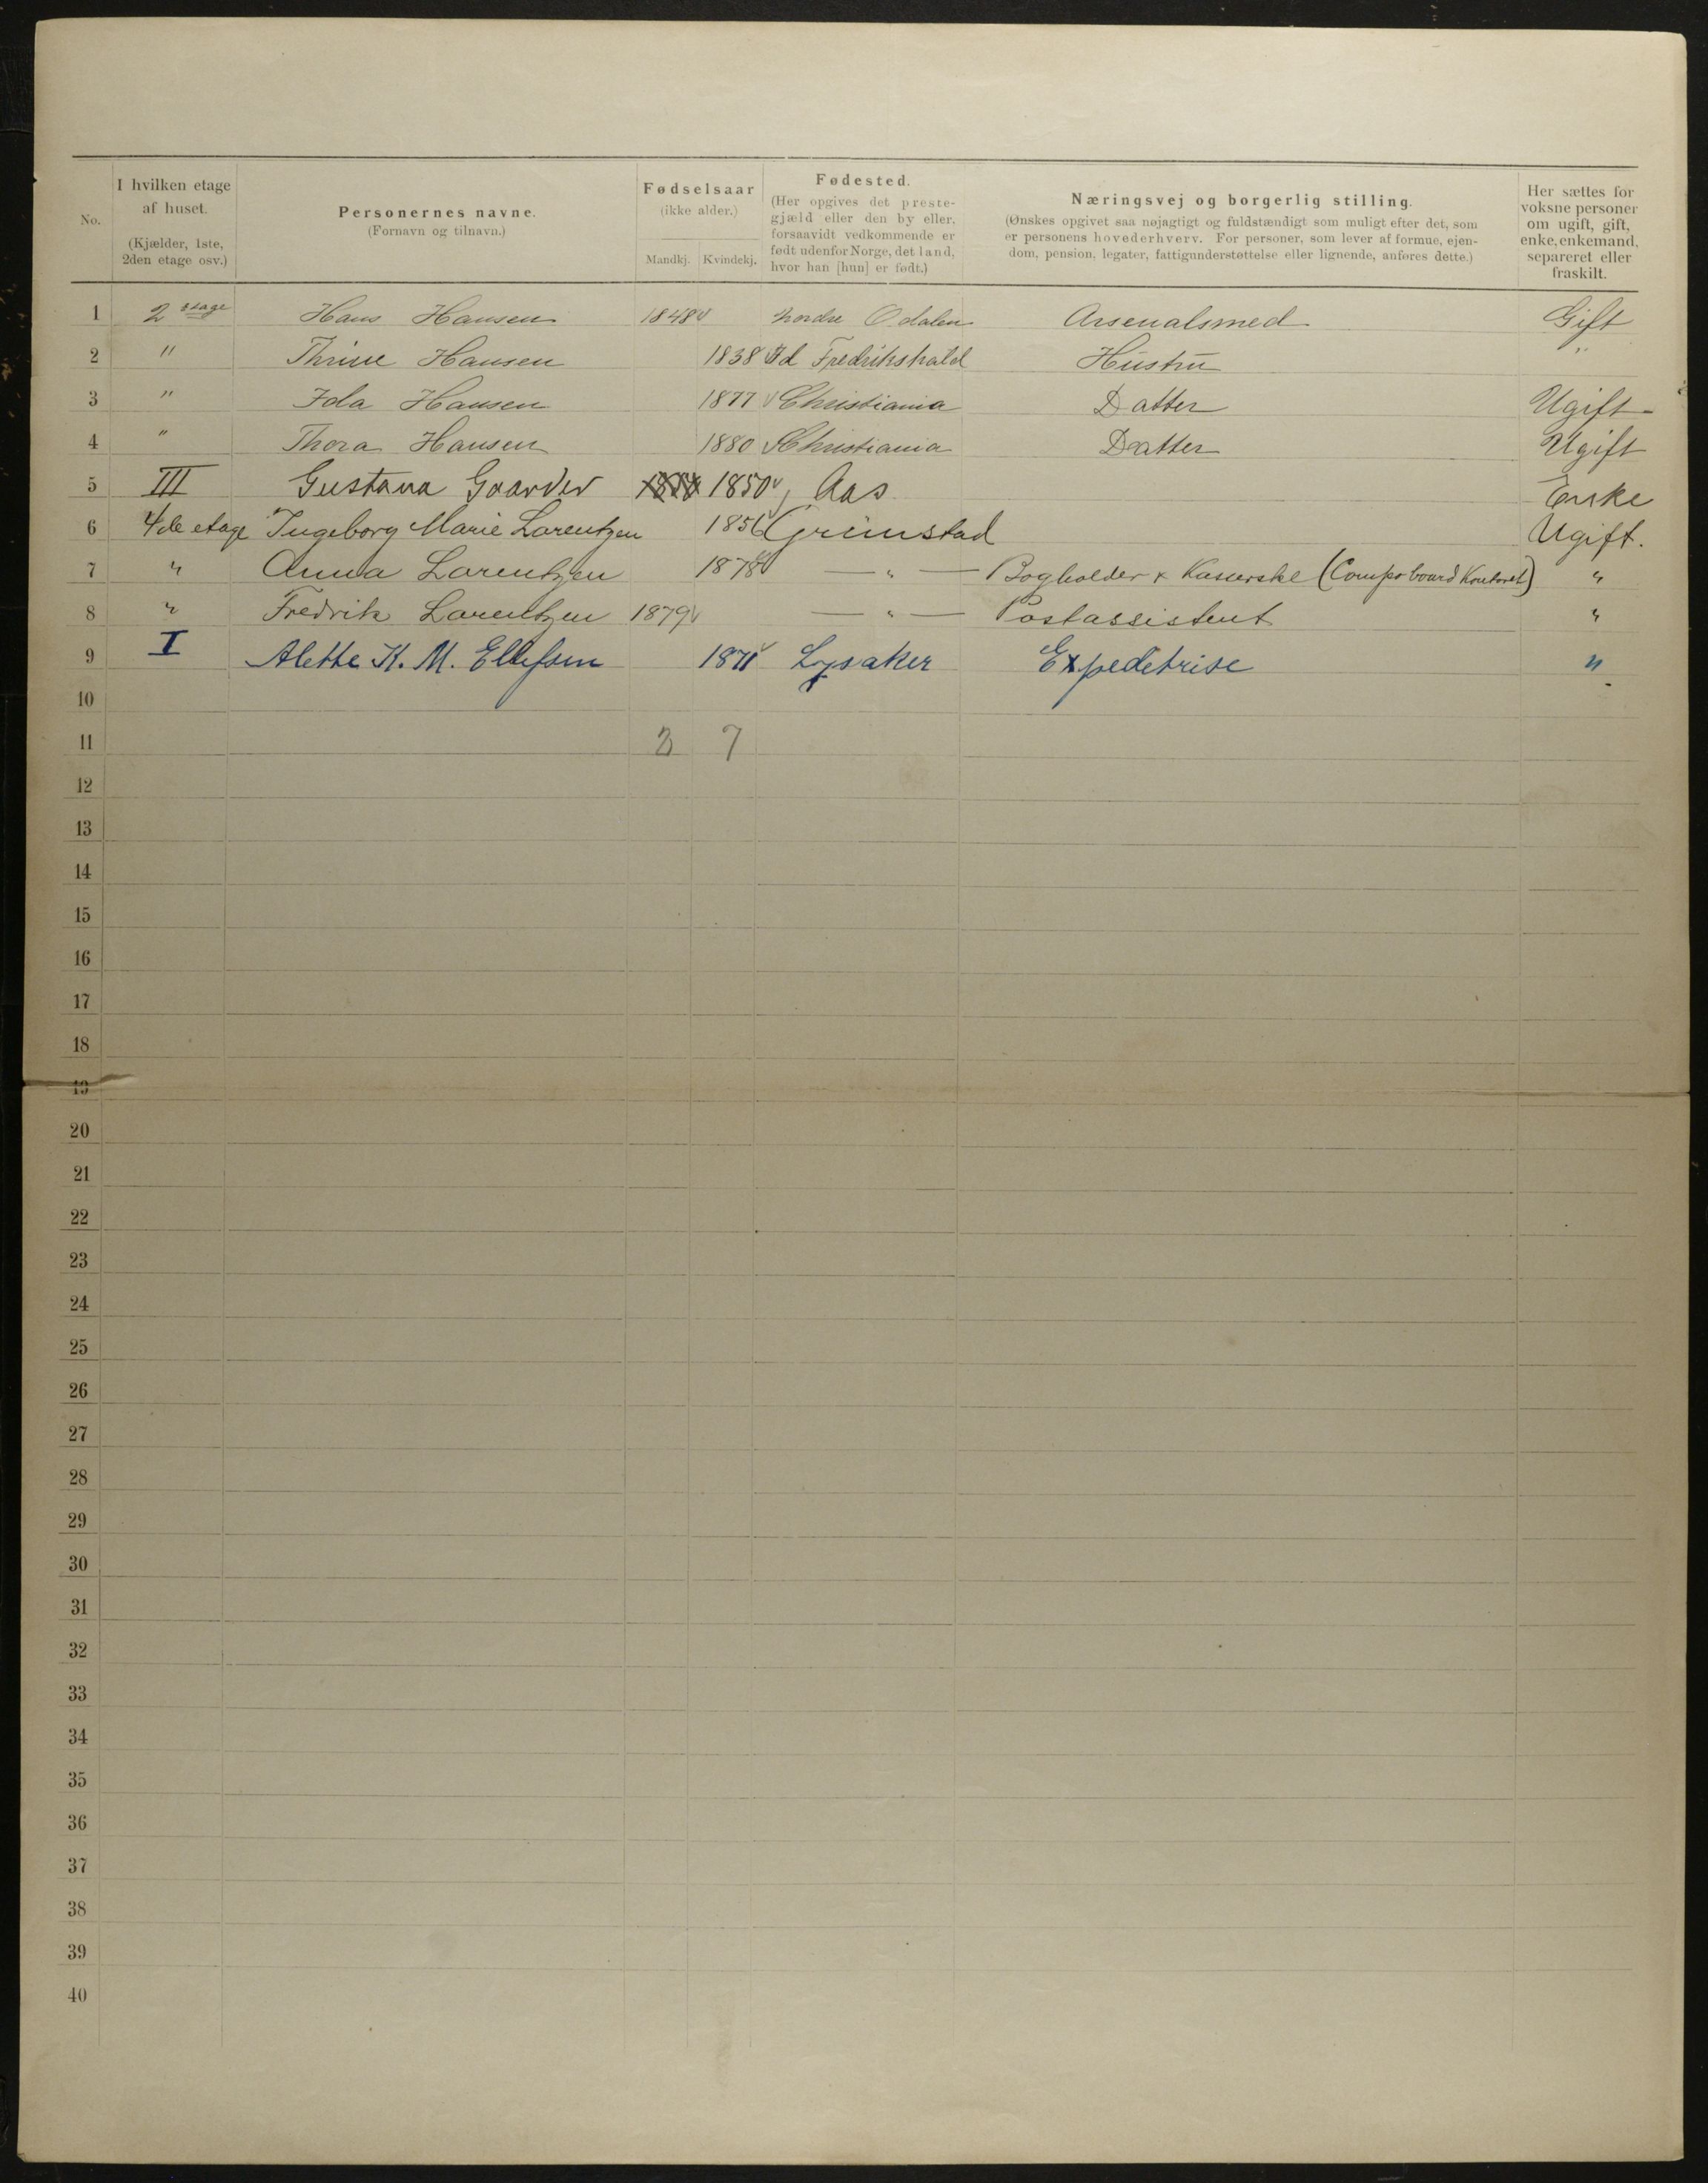 No.
I hvilken etage af huset. (Kjælder, 1ste, 2den etage osv.)
Personernes navne. (Fornavn og tilnavn.)
Fødselsaar (ikke alder.) Mandkj. Kvindekj.
Fødested. (Her opgives det prestegjæld eller den by eller, forsaavidt vedkommende er født udenfor Norge, det land, hvor han [hun] er født.)
Næringsvej og borgerlig stilling. (Ønskes opgivet saa nøjagtigt og fuldstændigt som muligt efter det, som er personens hovederhverv. For personer, som lever af formue, ejendom, pension, legater, fattigunderstøttelse eller lignende, anføres dette.)
Her sættes for voksne personer om ugift, gift, enke, enkemand, separeret eller fraskilt.
1 2 etage Hans Hansen 1848 nordre Odalen Arsenalsmed Gift
2 " Thrine Hansen 1838 Id Fredrikshald Hustru "
3 " Ida Hansen 1877 Christiania Datter Ugift
4 " Thora Hansen 1880 Christiania Datter Ugift
5 III Gustava Gaarder 1850 Aas Enke
6 4de etage Ingeborg Marie Lorentzen 1856 Grimstad Ugift.
7 " Anna Lorentzen 1878 — " — Bogholder & Kasserske (Compoboard Kontoret) "
8 " Fredrik Lorentzen 1879 — " — Postassistent "
9 I Alette K. M. Ellefsen 1871 Lysaker Expeditrise "
10
11 2 7
12
13
14
15
16
17
18
19
20
21
22
23
24
25
26
27
28
29
30
31
32
33
34
35
36
37
38
39
40